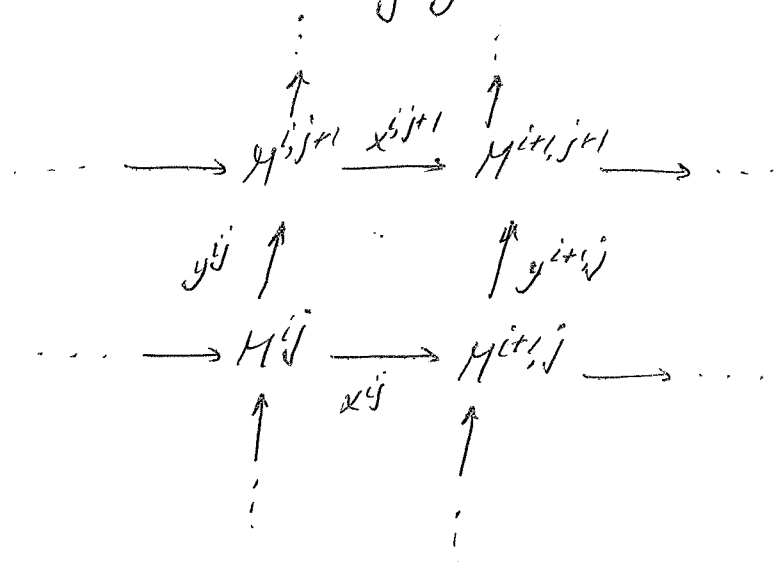 x^{i,j+1}
M^{i,j+1} M^{i+1,j+1}
y^{ij} y^{i+1,j}
M^{ij} M^{i+1,j}
x^{ij}